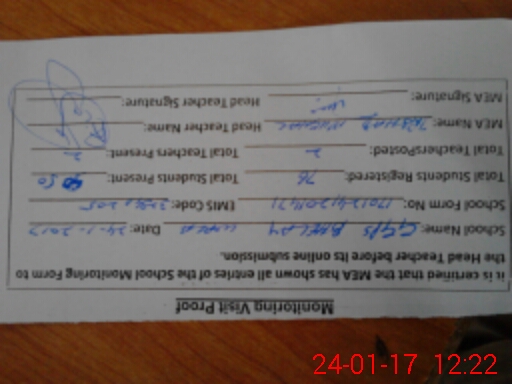 Monitoring Visit Proof
it is certified that the MEA has shown all entries of the School Monitoring Form to
the Head Teacher before its online submission.
School Name: GGPS Date: 24-1-2017
School Form No: EMIS Code:
Total Students Registered: 76 Total Students Present: 50
Total TeachersPosted: 2 Total Teachers Present: 2
MEA Name: Head Teacher Name:
MEA Signature: Head Teacher Signature:
24-01-17 12:22